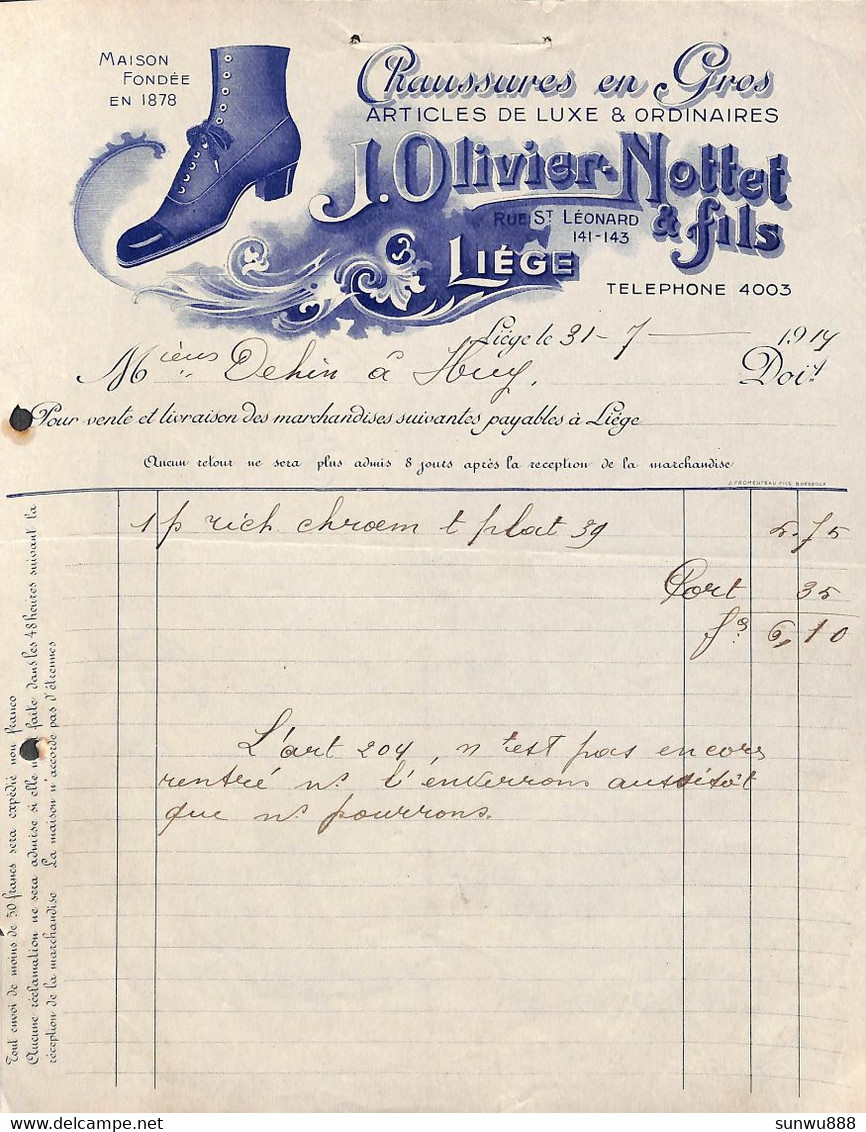 MAISON
FONDÉE
EN 1878
Chaussures en Gros
ARTICLES DE LUXE & ORDINAIRES
J. Olivier-Nottet
& fils
RUE ST LÉONARD
141-143
LIÉGE
TELEPHONE 4003
Liége le 31-7 1914
Mieurs Dehin à Huy,
Doit
Pour vente et livraison des marchandises suivantes payables à Liége
Aucun retour ne sera plus admis 8 jours après la reception de la marchandise
1 p rich chroem t plat 39 5.75
Port 35
fs 6,10
L'art 204, n'est pas encore
rentré ns l'enverrons aussitôt
que ns pourrons.
Tout envoi de moins de 50 francs sera expédié non franco
Aucune réclamation ne sera admise si elle faite dans les 48 heures suivant la
réception de la marchandise La maison n'accorde pas d'étrennes
sunwu888